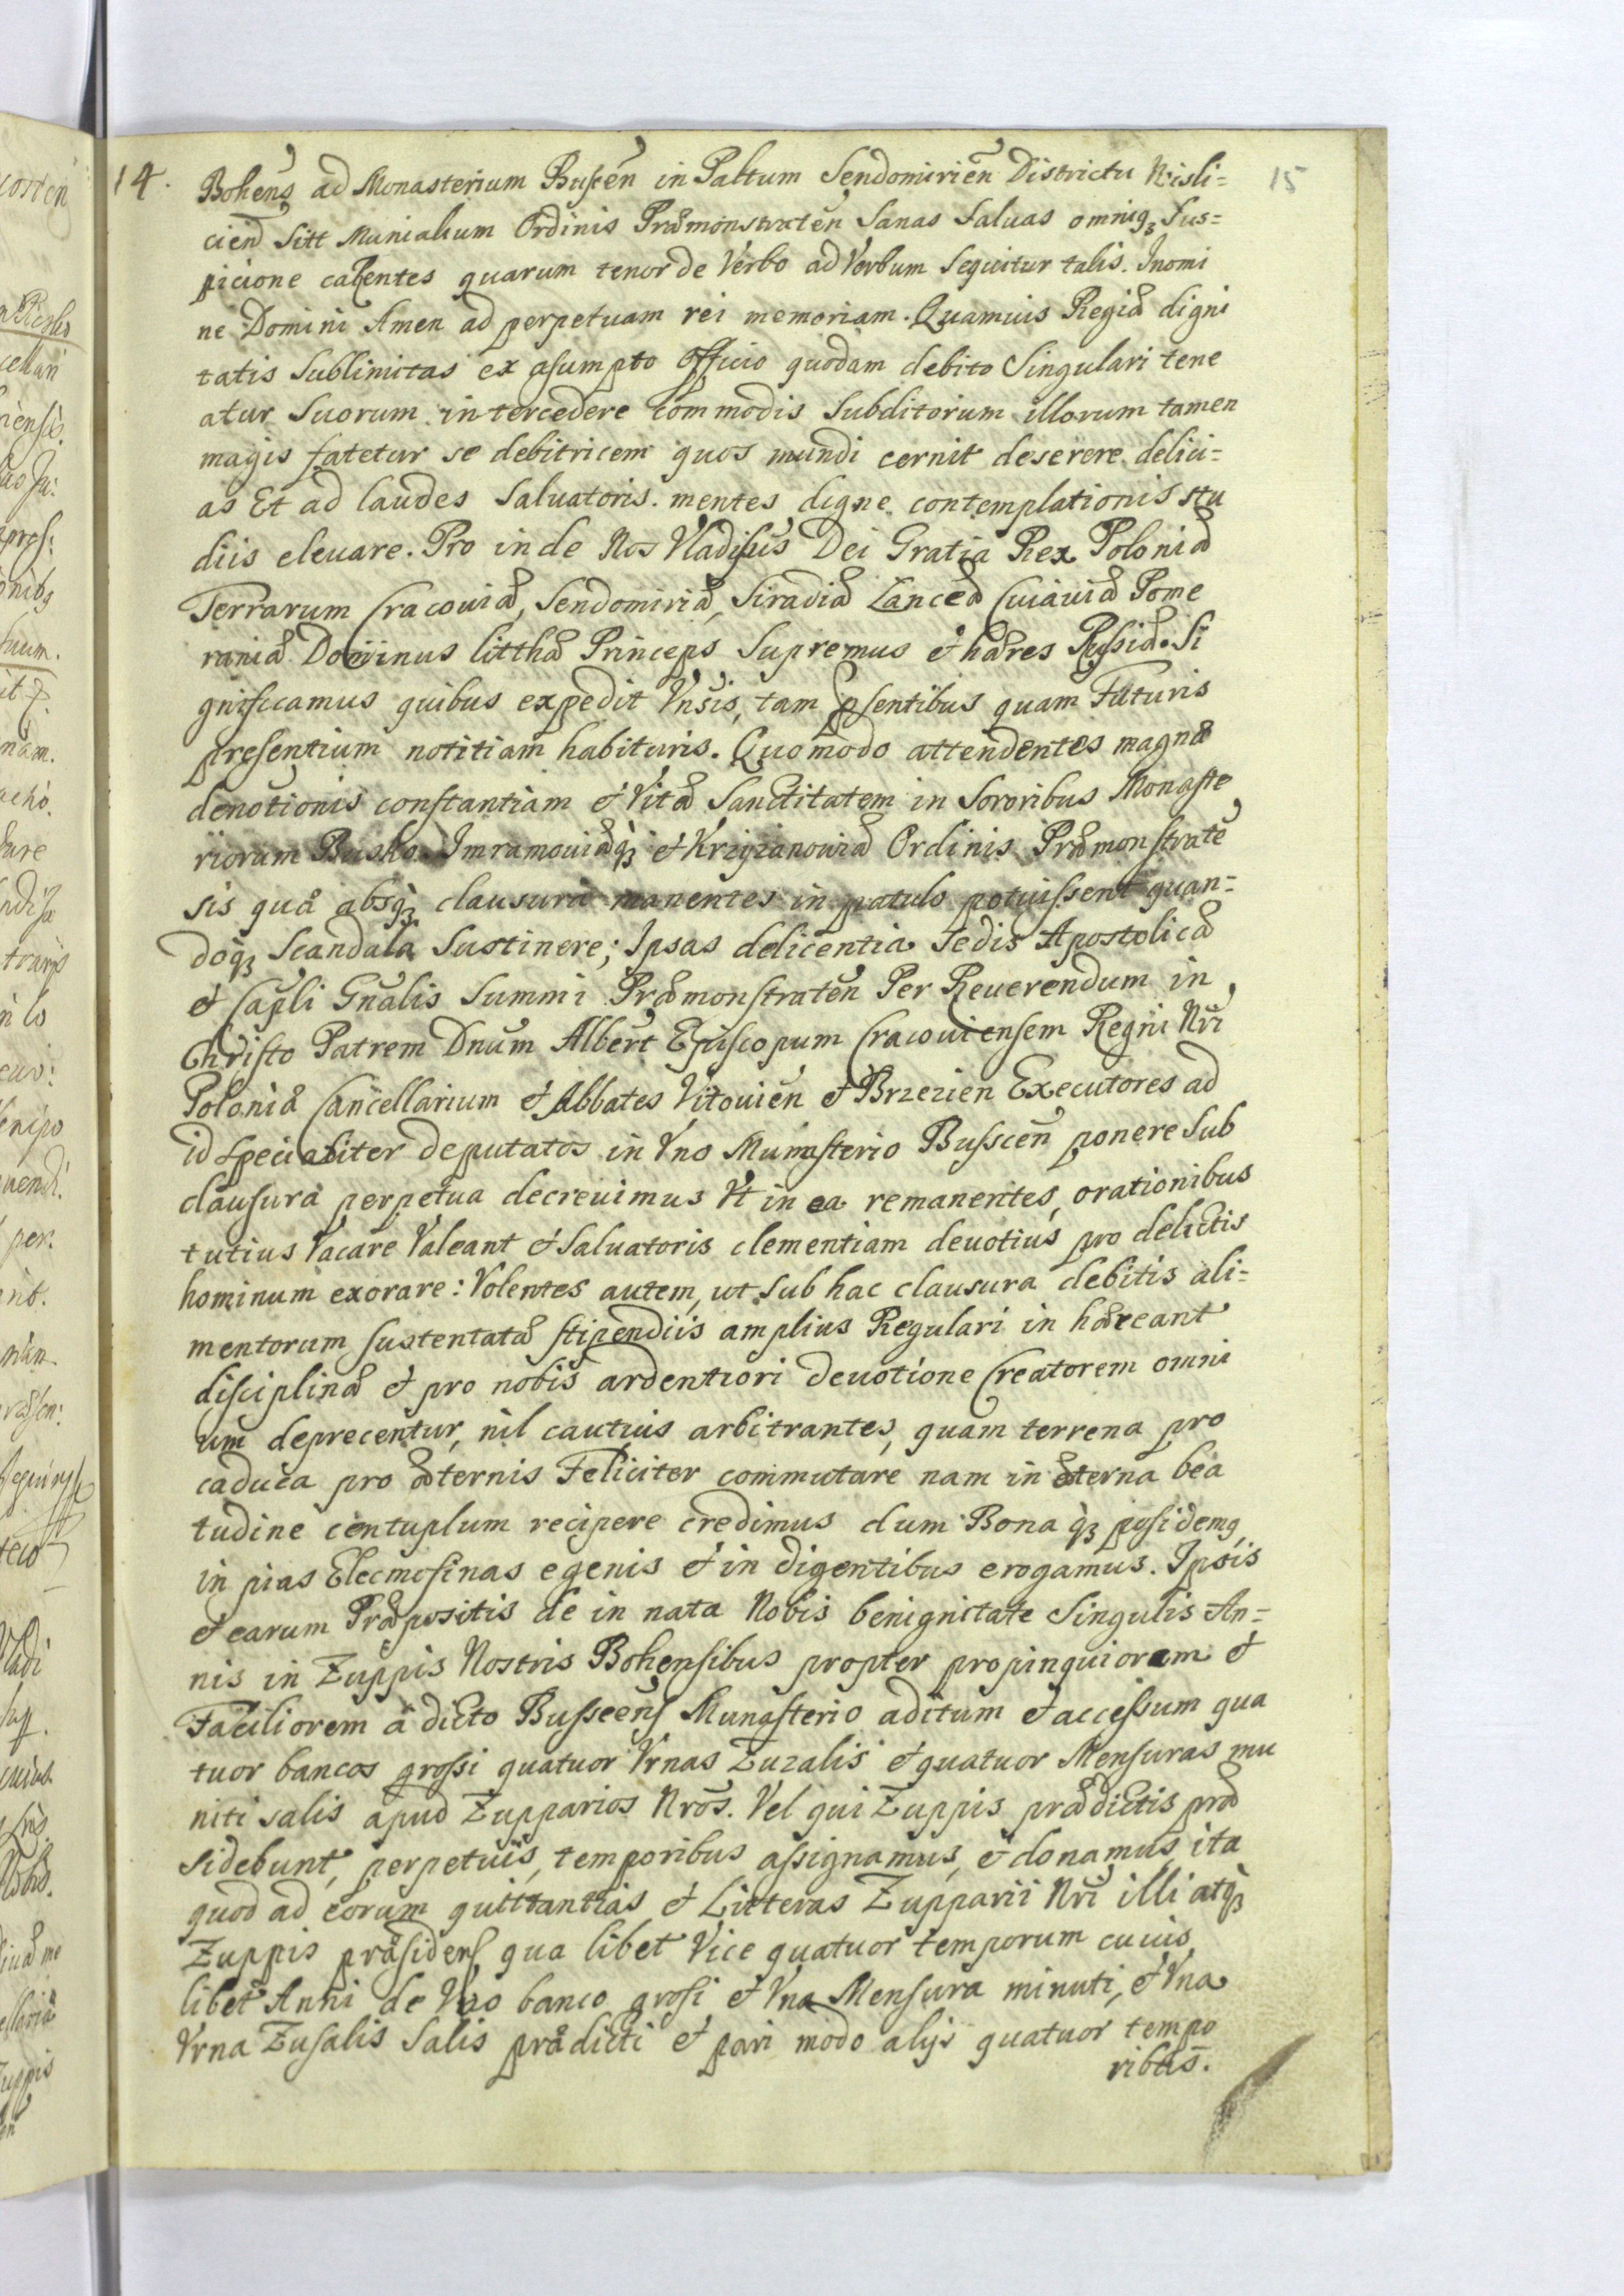 14. 15
Bohens ad Monasterium Buscen̄ in Paltum Sendomirien̄ Districtu Nisli=
cien̄ Sitt Munialium Ordinis Præmonstraten̄ Sanas Saluas omniqꝫ Sus=
picione carentes quarum tenor de Verbo ad Verbum Sequitur talis. Inomi
ne Domini Amen ad perpetuam rei memoriam. Quamuis Regiæ digni
tatis Sublimitas ex asumpto Officio quodam debito Singulari tene
atur Suorum intercedere commodis Subditorum illorum tamen
magis fatetur se debitricem quos mundi cernit deserere delici=
as Et ad laudes Saluatoris. mentes digne contemplationis stu
diis eleuare. Pro inde Nos Vladis̄us Dei Gratia Rex Poloniæ
Terrarum Cracouiæ, Sendomiriæ, Siradiæ Lanceæ Cuiauiæ Pome
raniæ Dominus litthæ Princeps Supremus et hæres Rusiæ. Si
gnificamus quibus expedit Vn̄sis, tam p̄sentibus quam Futuris
presentium notitiam habituris. Quomodo attendentes magnæ
deuotionis constantiam et Vitæ Sanctitatem in Sororibus Monaste
riorum Busko Imramouiæqꝫ et Krzyzanouiæ Ordinis Præmonstratē
sis quæ absqꝫ clausura manentes in patulo potuissent quan=
doqꝫ Scandala Sustinere; Ipsas delicentia Sedis Apostolicæ
et Cap̄li Gn̄alis Summi Præmonstraten̄ Per Reuerendum in
Christo Patrem Dn̄um Albert̄ Episcopum Cracouiensem Regni Nr̄i
Poloniæ Cancellarium et Abbates Vitouien̄ et Brzezien Executores ad
id Specialiter deputatos in Vno Munasterio Busscen̄ ponere Sub
clausura perpetua decreuimus Vt in ea remanentes, orationibus
tutius Vacare Valeant et Saluatoris clementiam deuotius pro delictis
hominum exorare: Volentes autem, ut Sub hac clausura debitis ali=
mentorum sustentatæ stipendiis amplius Regulari in hæreant
disciplinæ et pro nobis ardentiori Deuotione Creatorem omni
um deprecentur, nil cautius arbitrantes, quam terrena pro
caduca pro æternis Feliciter commutare nam in æterna bea
tudine centuplum recipere credimus dum Bona qꝫ posidemꝰ
in pias Elecmosinas egenis et in digentibus erogamus. Ipsis
et earum Præpositis de in nata Nobis benignitate Singulis An=
nis in Zuppis Nostris Bohensibus propter propinquiorem et
Faciliorem à dicto Busscens Munasterio aditum et accessum qua
tuor bancos grossi quatuor Vrnas Zuzalis et quatuor Mensuras mu
niti salis apud Zupparios Nrōs. Vel qui Zuppis prædictis præ
sidebunt, perpetuis, temporibus assignamus, et donamus, ita
quod ad eorum quittantias et Litteras Zupparii Nr̄i illi atqꝫ
Zuppis præsidens qua libet Vice quatuor temporum cuius
libet Anni de Vno banco grosi et Vna Mensura minuti, et Vna
Vrna Zusalis Salis prædicti et pari modo alijs quatuor tempo
ribus.